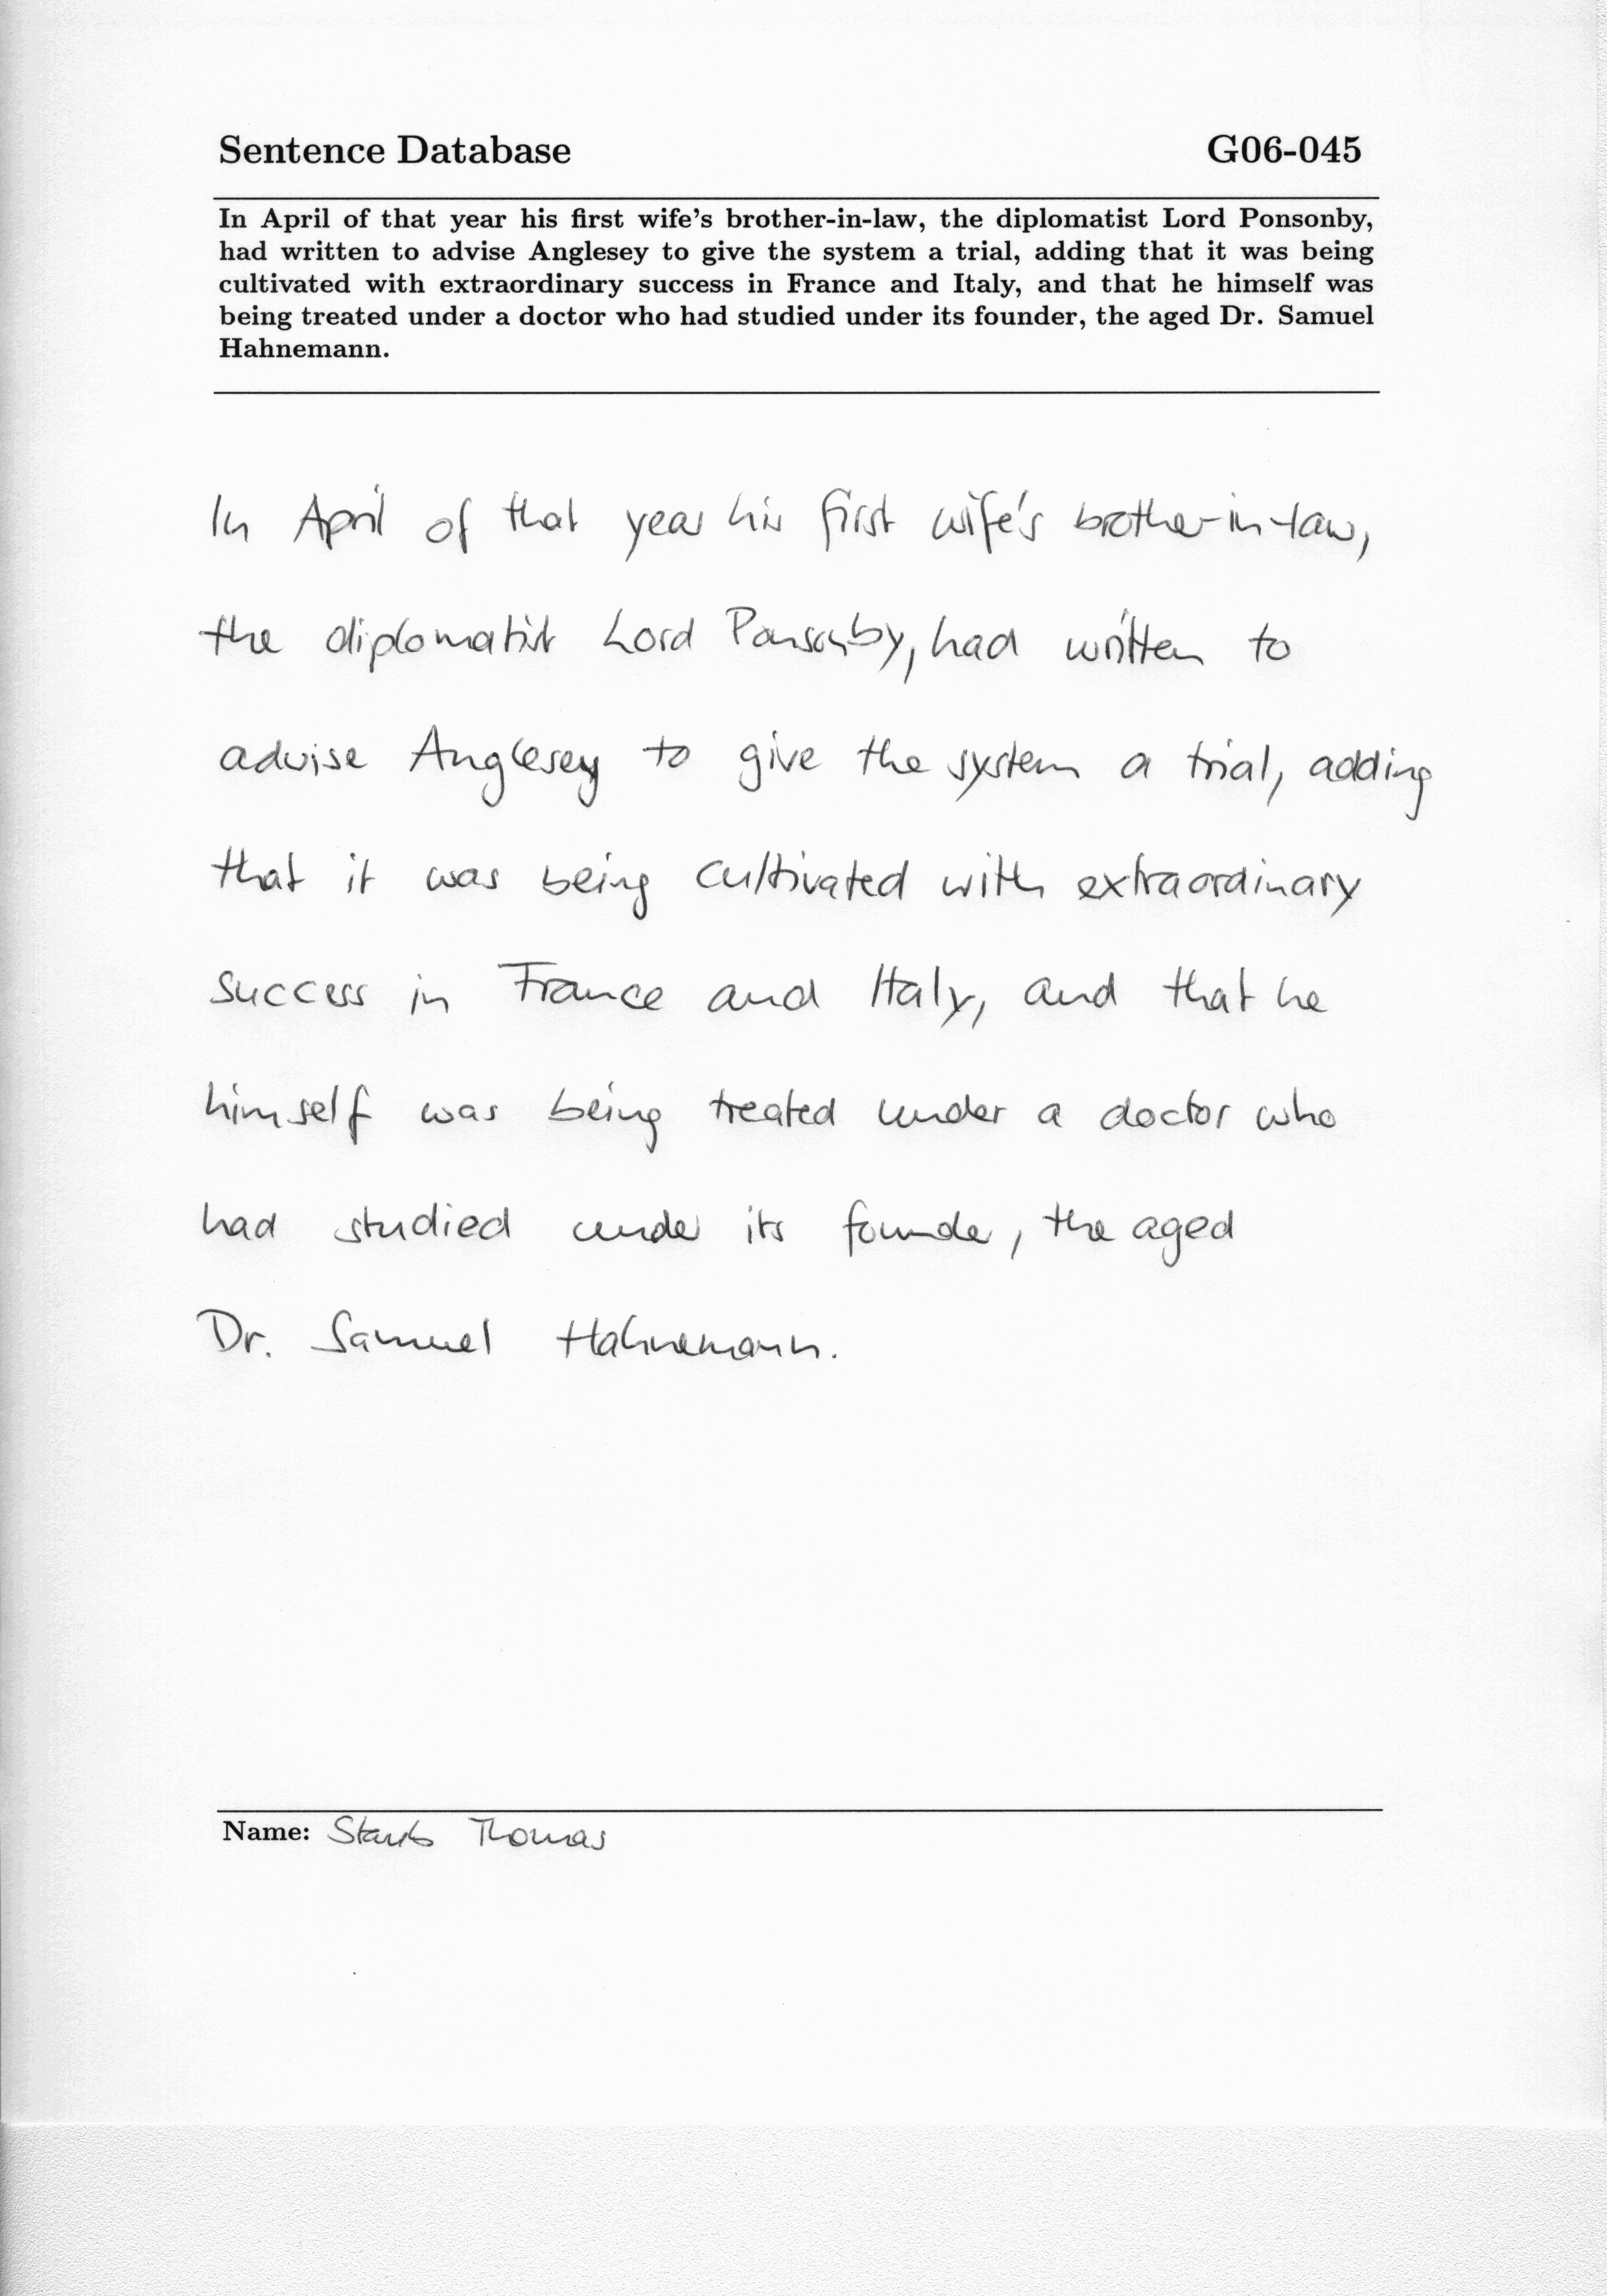 Sentence Database G06-045
In April of that year his first wife's brother-in-law, the diplomatist Lord Ponsonby,
had written to advise Anglesey to give the system a trial, adding that it was being
cultivated with extraordinary success in France and Italy, and that he himself was
being treated under a doctor who had studied under its founder, the aged Dr. Samuel
Hahnemann.
In April of that year his first wife's brother-in-law,
the diplomatist Lord Ponsonby, had written to
advise Anglesey to give the system a trial, adding
that it was being cultivated with extraordinary
success in France and Italy, and that he
himself was being treated under a doctor who
had studied under its founder, the aged
Dr. Samuel Hahnemann.
Name: Staub Thomas